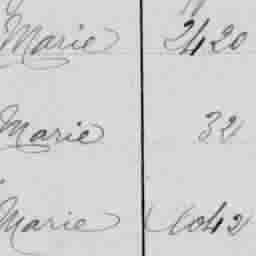 Marie 2420
Marie 32
Marie 1042